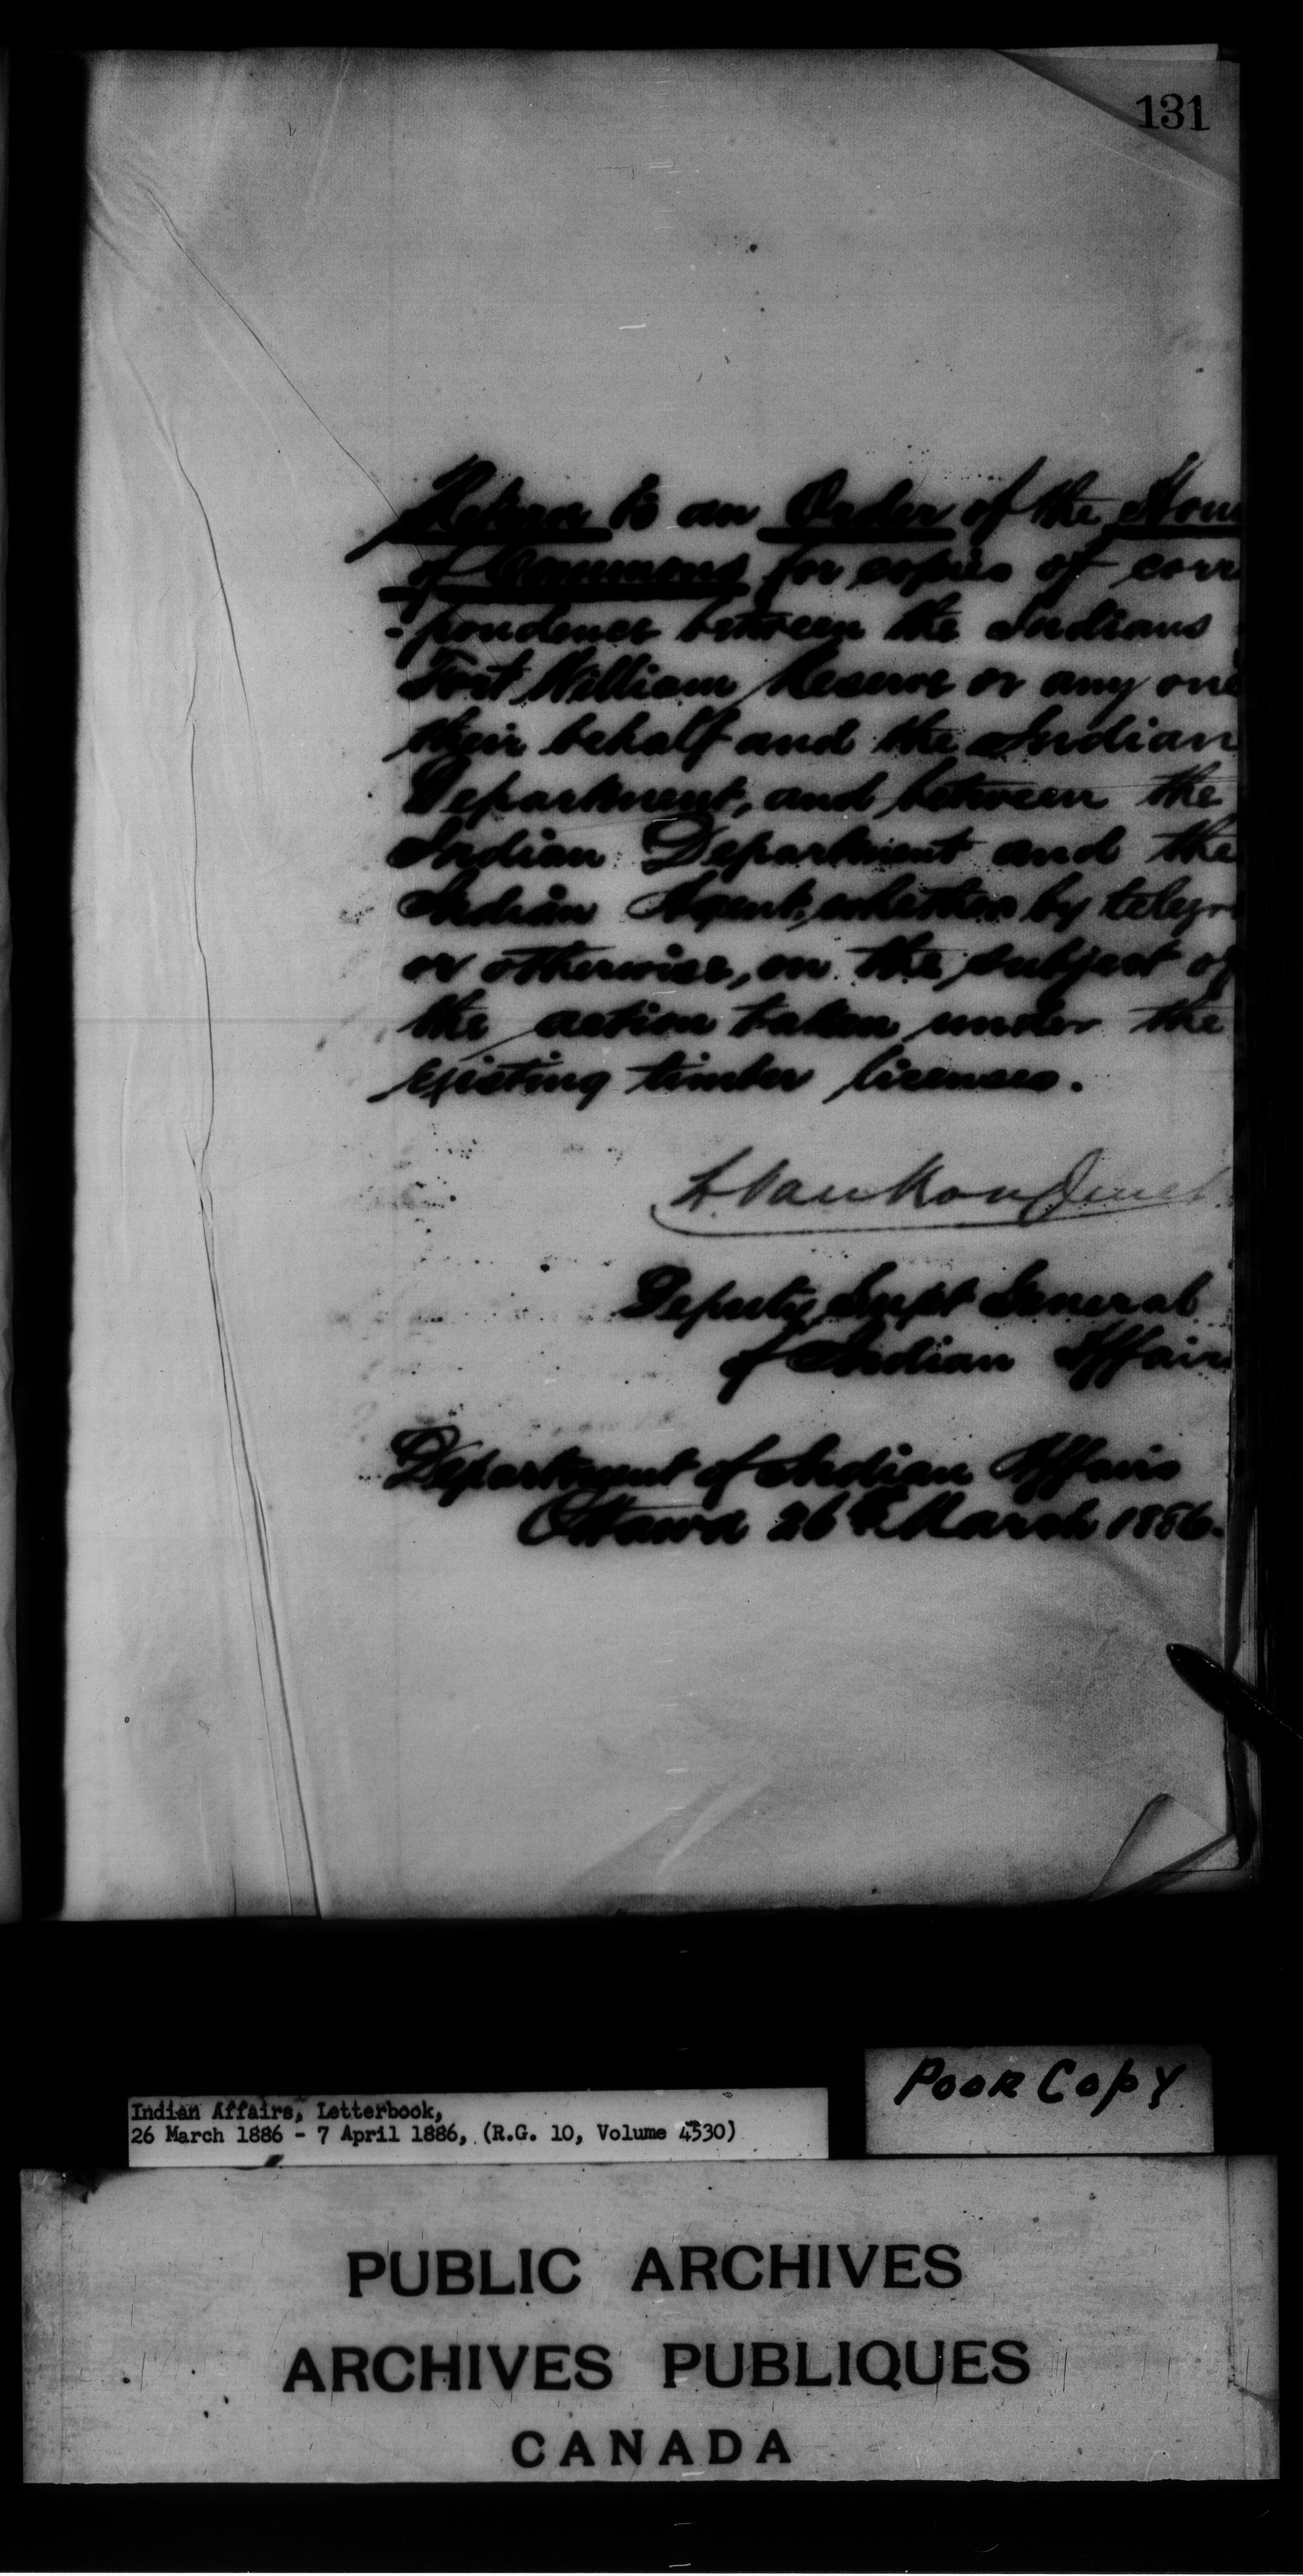 131
Return to an Order of the Hous
of Commons for copies of corr
-pondence between the Indians
Fort William Reserve or any one
their behalf and the Indian
Department, and between the
Indian Department and the
Indian Agent, whether by telegr
or otherwise, on the subject of
the action taken under the
existing timber licenses.
L. VanKoughnet
Deputy Supt General
of Indian Affairs
Department of Indian Affairs
Ottawa 26th March 1886.
Poor Copy
Indian Affairs, Letterbook,
26 March 1886 - 7 April 1886, (R.G. 10, Volume 4530)
PUBLIC ARCHIVES
ARCHIVES PUBLIQUES
CANADA